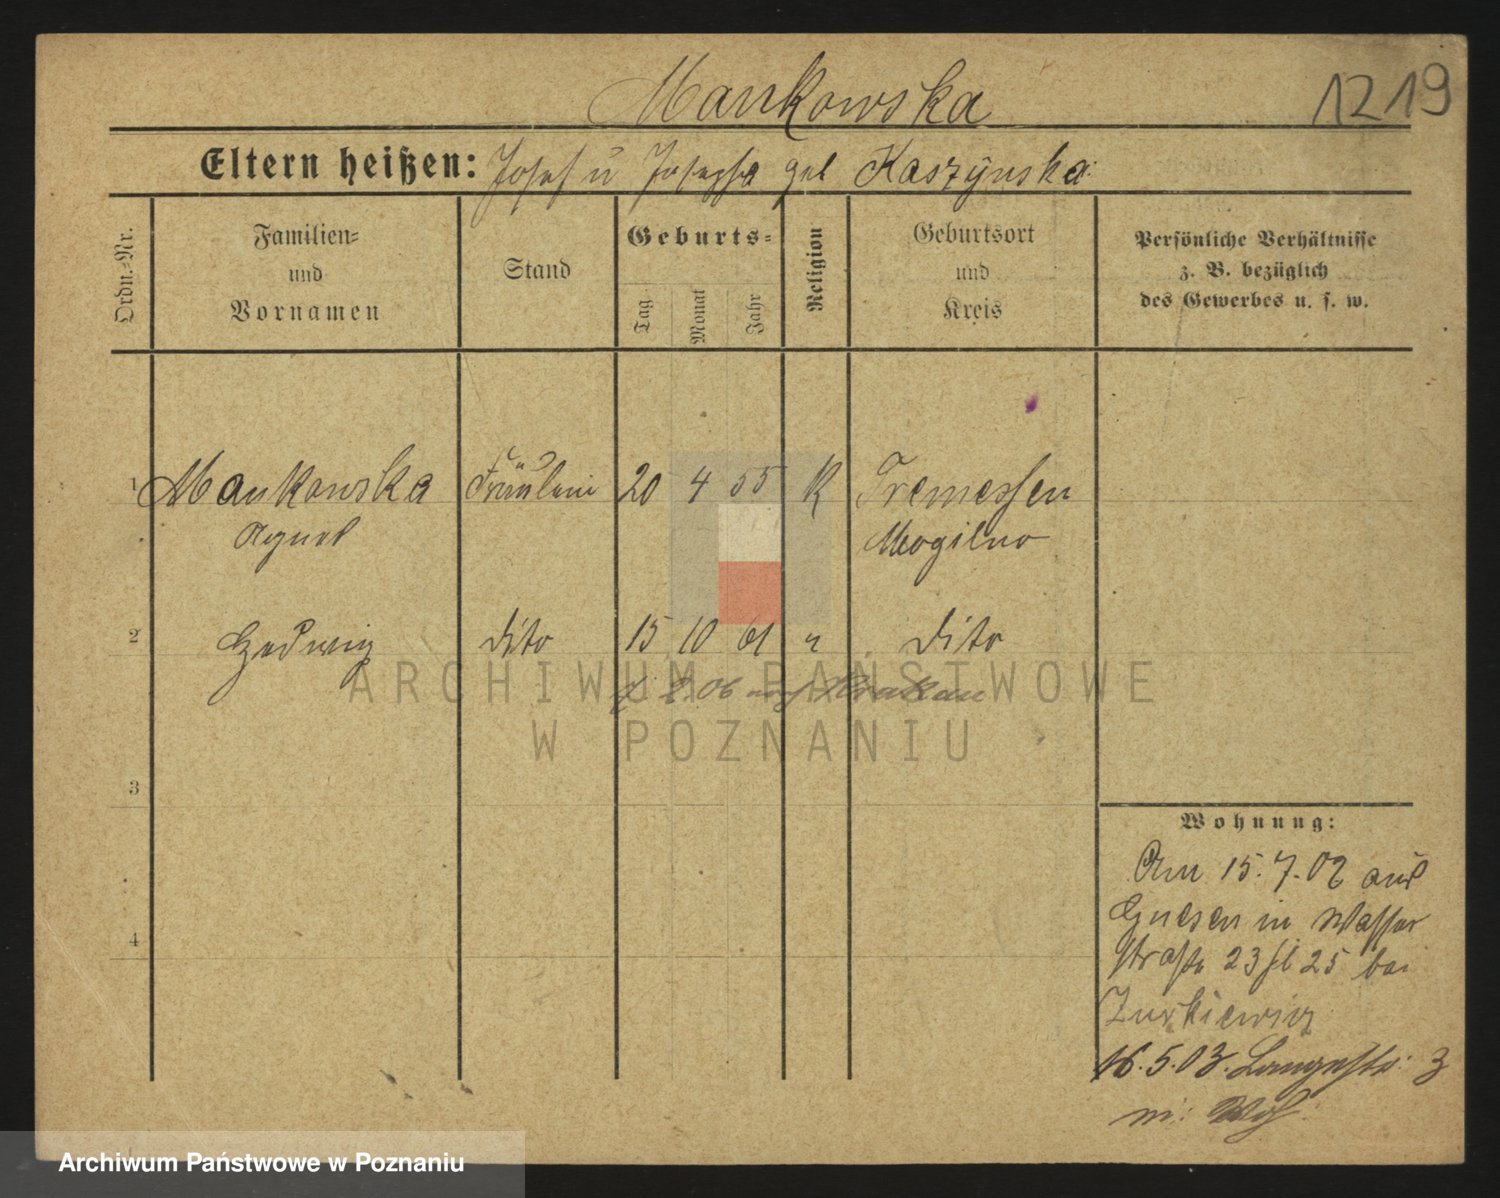 Mankowska
1219
Eltern heißen: Josef u Josepha geb Kaszynska
Ordn.-Nr.
Familien-
und
Vornamen
Stand
Geburts-
Tag
Monat
Jahr
Religion
Geburtsort
und
Kreis
Persönliche Verhältnisse
z. B. bezüglich
des Gewerbes u. s. w.
1 Mankowska Fräulein 20 4 55 K Tremessen
Agnes Mogilno
2 Hedwig dito 15 10 61 " dito
06 nach Krakau
ARCHIWUM PAŃSTWOWE
W POZNANIU
3
4
Wohnung:
Am 15.7.02 aus
Gnesen in Wasser
straße 23 25 bei
Zurkiewicz
16.5.03. Langestr. 3
m. Woh
Archiwum Państwowe w Poznaniu